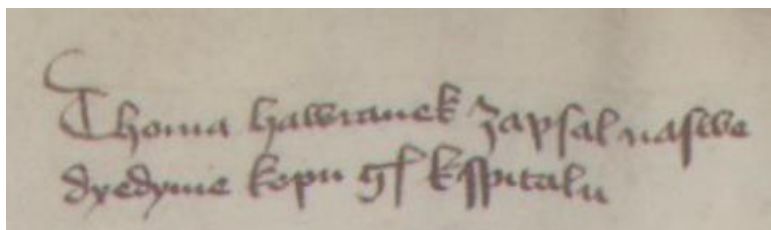 Thoma hawranek zapsal naswe
dyedyme kopu gſ kſspitalu